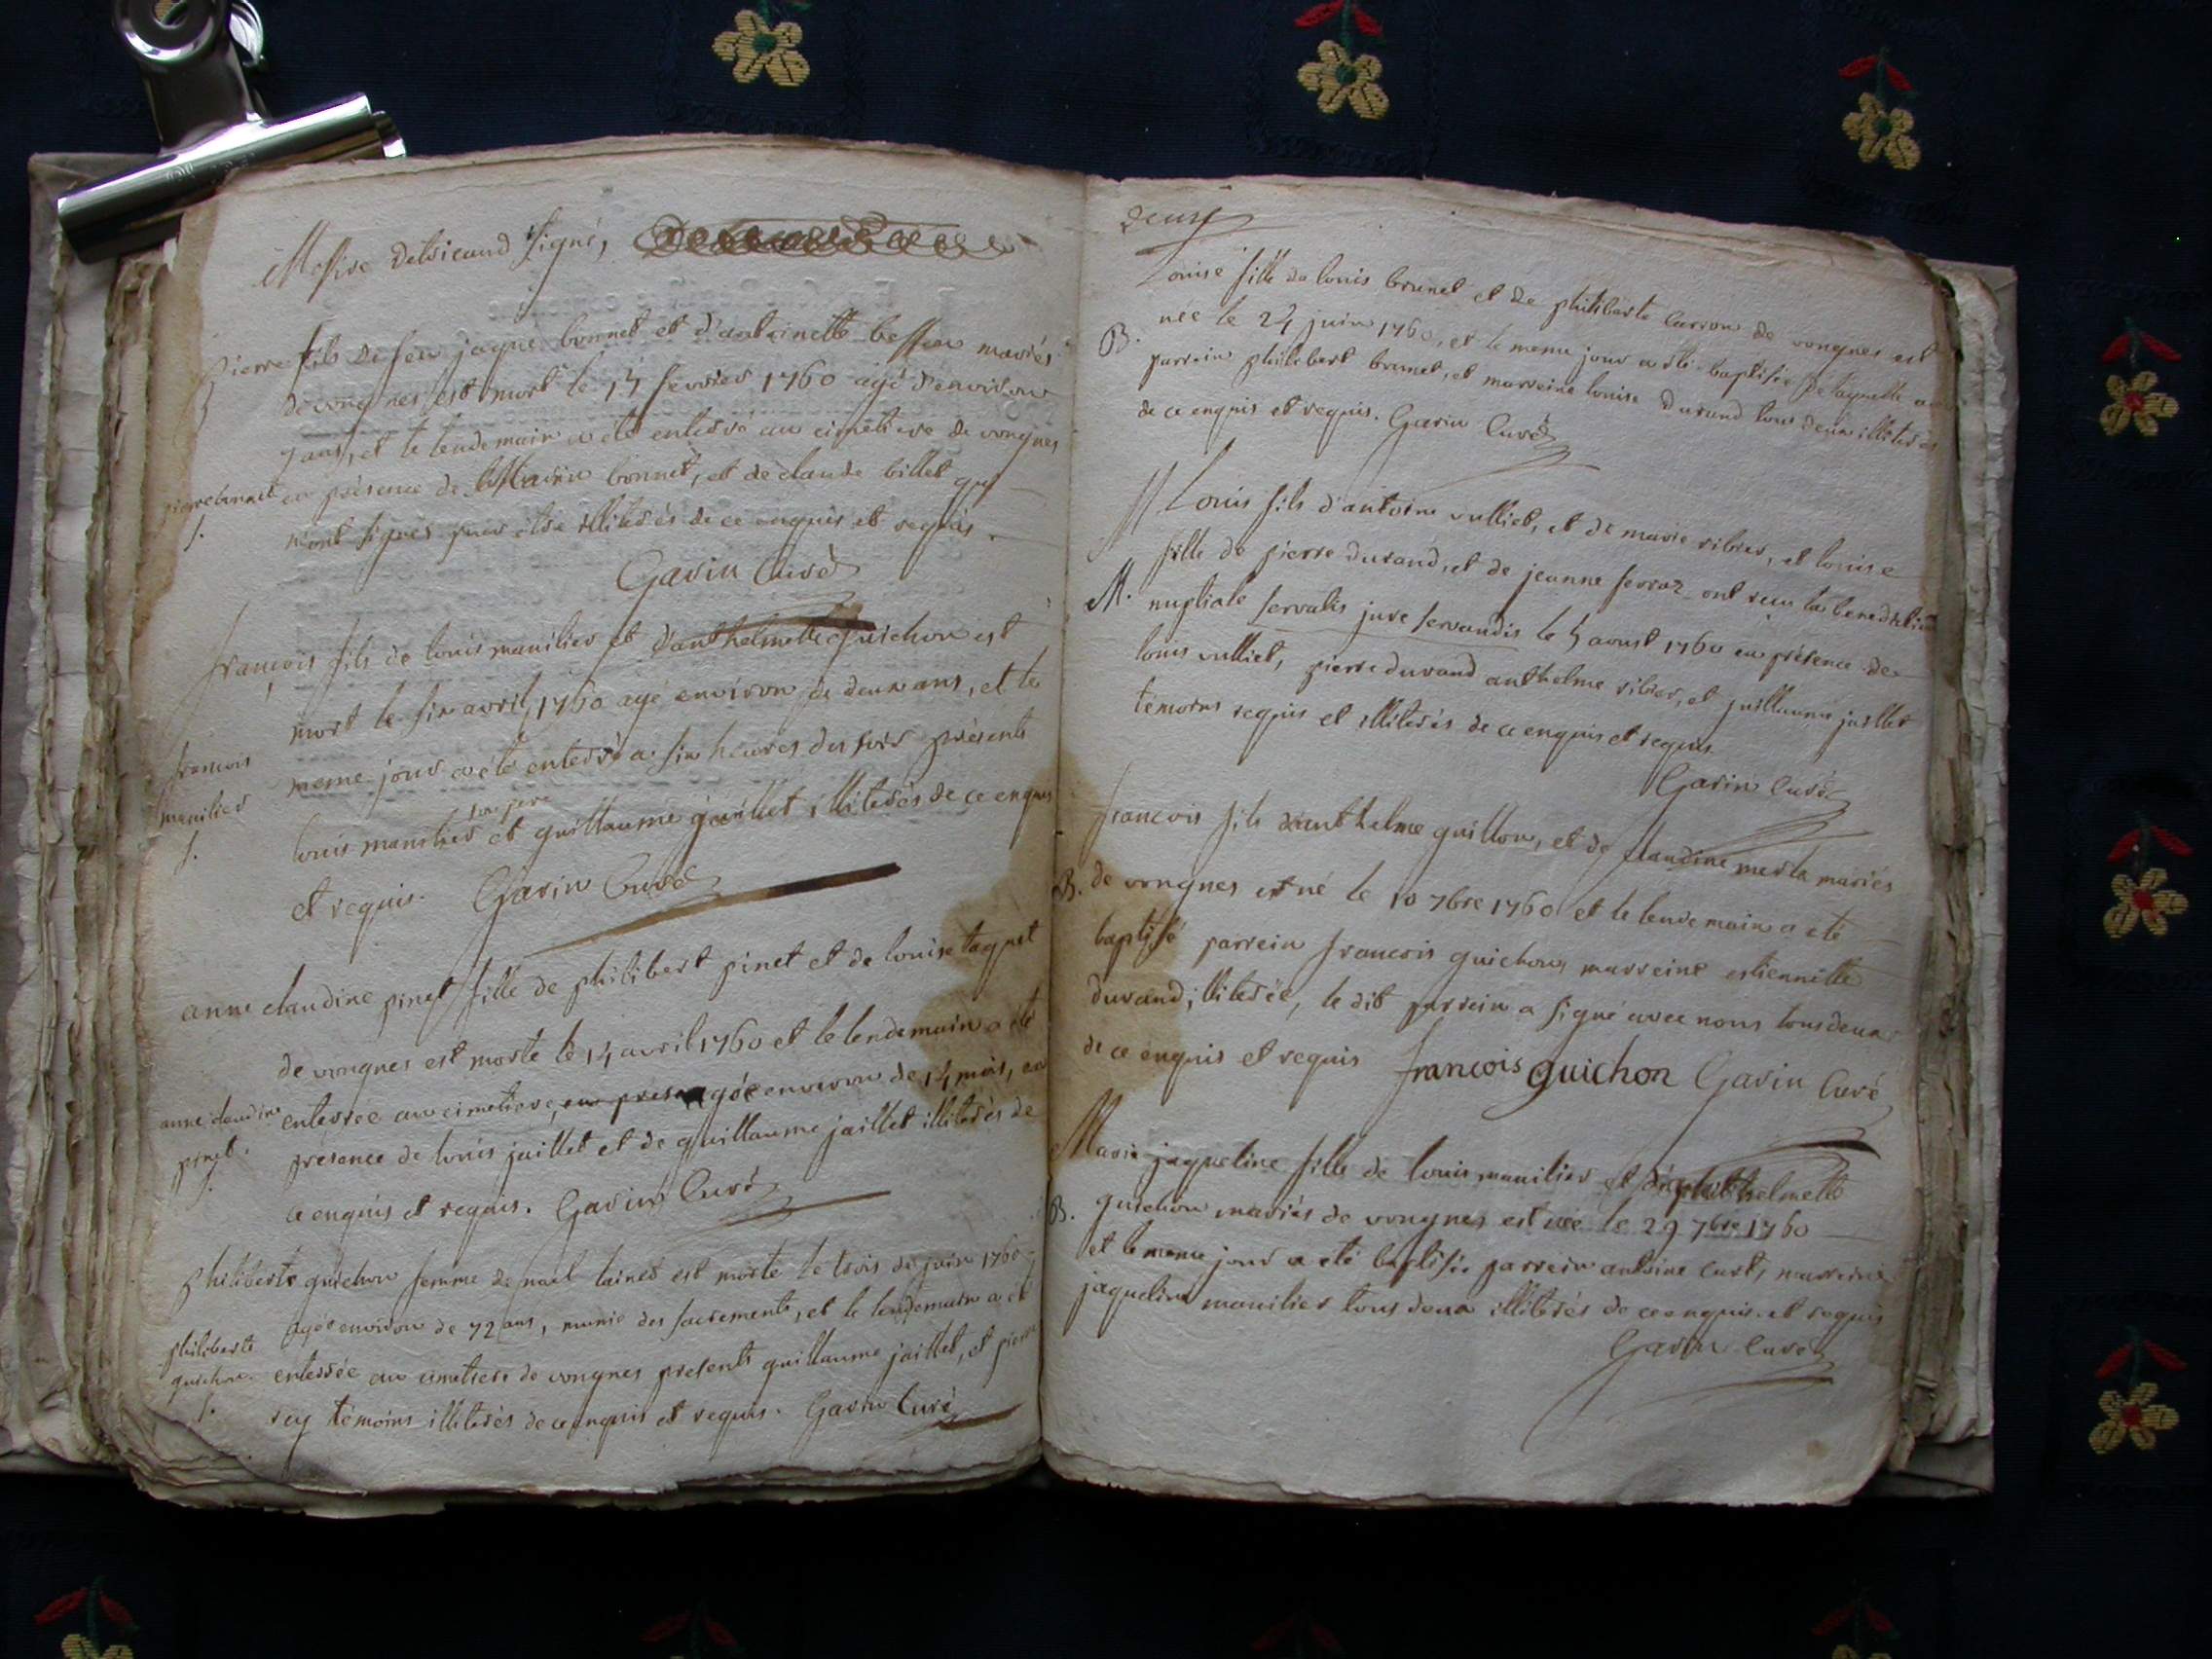 Messire Delsicaud signé,
pierre fils de feu jaque bonnet et d'antoinette besson mariés
de vongnes est mort le 14 fevrier 1760 agé d'environ
7 ans, et le lendemain a été enterré au cimetiere de vongnes
pierre bonnet
en présence de Marin bonnet, et de claude billet qui
s.
n'ont signés pour etre illiterés de ce enquis et requis.
Gavin Curé
françois fils de louis manilier et d'anthelmette guichon est
mort le six avril 1760 agé environ de deux ans, et le
francois
manilier
s.
meme jour a été enterré a six heures du soir présents
son pere
louis manilier et guillaume jaillet illiterés de ce enquis
et requis. Gavin Curé
anne claudine pinet fille de philibert pinet et de louise taquet
de vongnes est morte le 14 avril 1760 et le lendemain a été
anne claudine
pinet.
s.
enterrée au cimetiere, en presen agée environ de 14 mois, en
présence de louis jaillet et de guillaume jaillet illiterés de
ce enquis et requis. Gavin Curé
philiberte guichon femme de noël tainet est morte le trois de juin 1760
agée environ de 72 ans, munie des sacrements, et le lendemain a été
philiberte
guichon.
s.
enterrée au cimetiere de vongnes presents guillaume jaillet, et pierre
rey témoins illiterés de ce enquis et requis. Gavin Curé
deux
Louise fille de louis brunet et de philiberte Carron de vongnes est
B.
née le 24 juin 1760, et le meme jour a été baptisée de laquelle a
parrein philibert brunet, et marreine louise Durand tous deux illiterés
de ce enquis et requis. Gavin Curé
Louis fils d'antoine vulliet, et de marie ribier, et louise
fille de pierre durand, et de jeanne ferroz ont reçu la benediction
M.
nuptiale servatis jure servandis le 4 aoust 1760 en présence de
louis vulliet, pierre durand anthelme ribier, et guillaume jaillet
témoins requis et illiterés de ce enquis et requis.
Gavin Curé
francois fils d'anthelme guillon, et de claudine merla mariés
B.
de vongnes est né le 10 7bre 1760 et le lendemain a été
baptisé parrein francois guichon, marreine estiennette
durand illiterée, le dit parrein a signé avec nous tous deux
de ce enquis et requis françois guichon Gavin Curé
Marie jaqueline fille de louis manilier et d'anthelmette
B.
guichon mariés de vongnes est née le 29 7bre 1760
et le meme jour a été baptisée parrein antoine curt, marreine
jaqueline manilier tous deux illiterés de ce enquis et requis
Gavin Curé